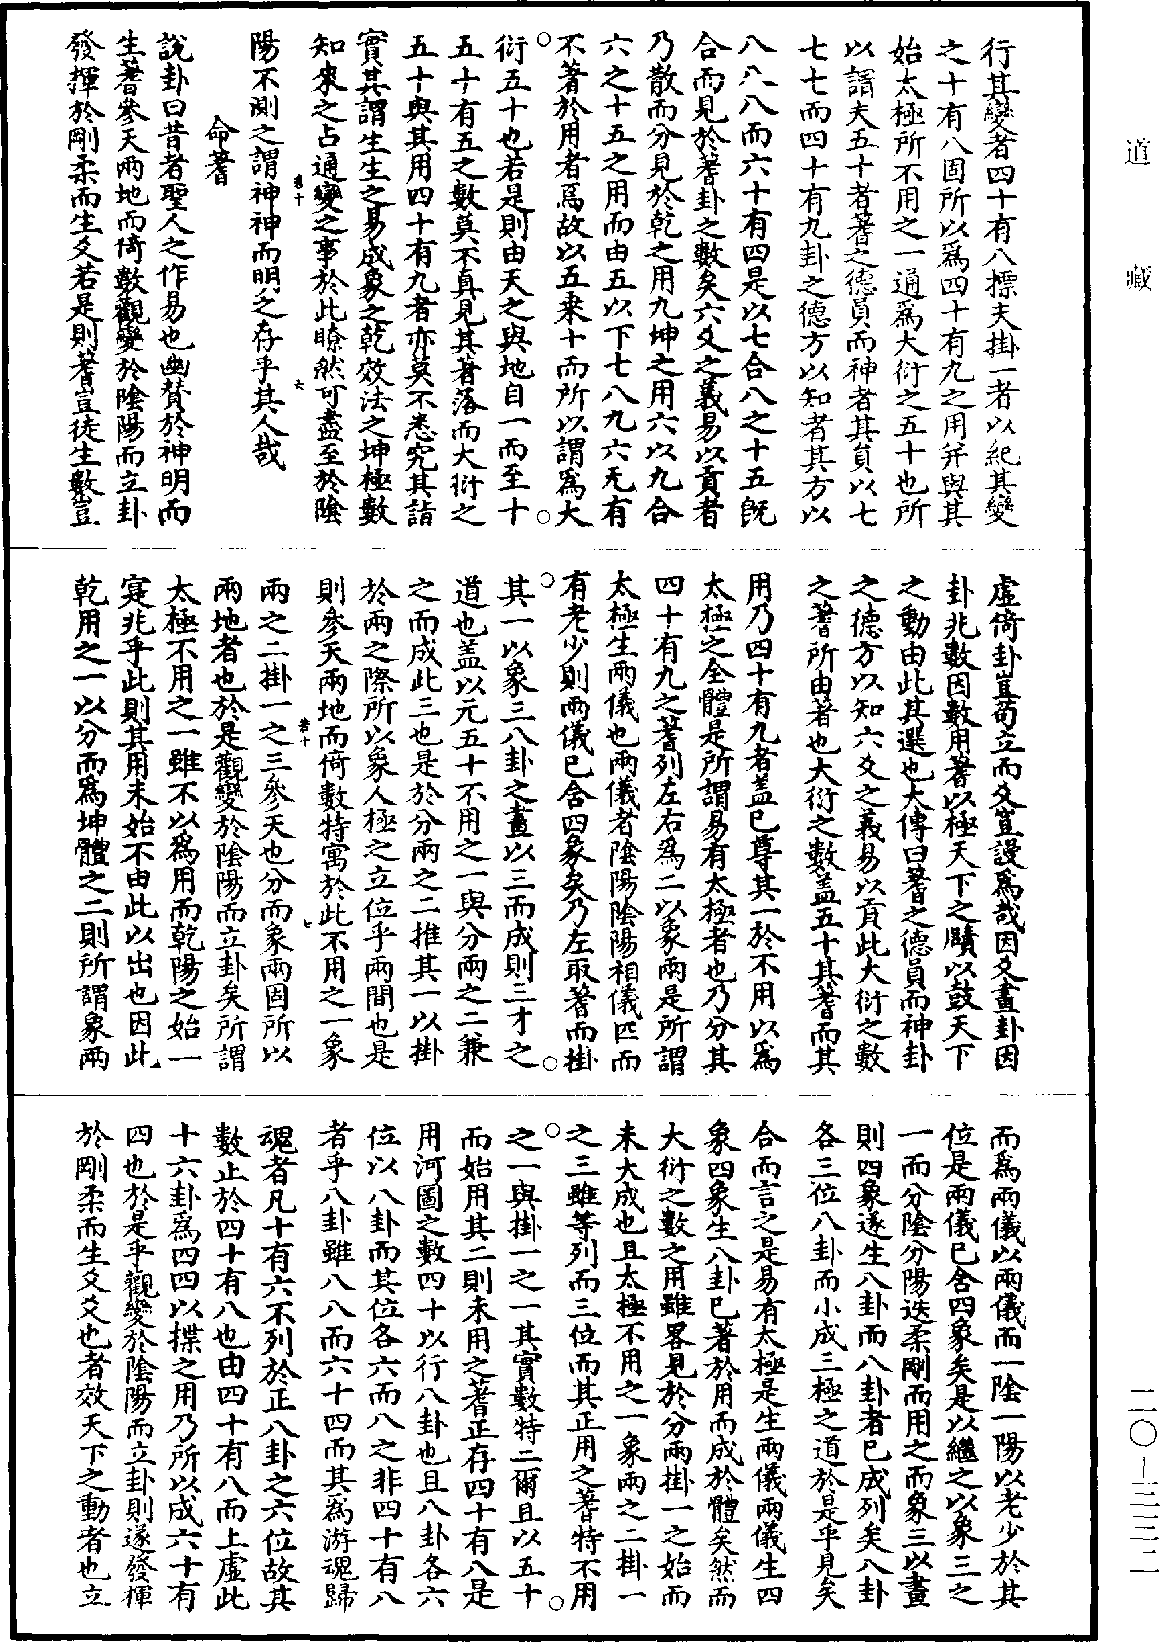 道藏
二〇—三二二
行其變者四十有八摽夫掛一者以紀其變
之十有八固所以爲四十有九之用并與其
始太極所不用之一通爲大衍之五十也所
以謂夫五十者蓍之德員而神者其員以七
七七而四十有九卦之德方以知者其方以
八八八而六十有四是以七合八之十五旣
合而見於蓍卦之數矣六爻之義易以貢者
乃散而分見於乾之用九坤之用六以九合
六之十五之用而由五以下七八九六无有
不著於用者爲故以五乘十而所以謂爲大
衍五十也若是則由天之與地自一而至十
五十有五之數莫不真見其著落而大衍之
五十與其用四十有九者亦莫不悉究其詣
實其謂生生之易成象之乾效法之坤極數
知來之占通變之事於此瞭然可盡至於陰
卷十
六
陽不測之謂神神而明之存乎其人哉
命蓍
說卦曰昔者聖人之作易也幽賛於神明而
生蓍參天兩地而倚數觀變於陰陽而立卦
發揮於剛柔而生爻若是則蓍豈徒生數豈
虛倚卦豈苟立而爻豈謾爲哉因爻畫卦因
卦兆數因數用蓍以極天下之賾以鼓天下
之動由此其選也大傳曰蓍之德員而神卦
之德方以知六爻之義易以貢此大衍之數
之蓍所由著也大衍之數蓋五十其蓍而其
用乃四十有九者蓋已尊其一於不用以爲
太極之全體是所謂易有太極者也乃分其
四十有九之蓍列左右爲二以象兩是所謂
太極生兩儀也兩儀者陰陽陰陽相儀匹而
有老少則兩儀已含四象矣乃左取蓍而掛
其一以象三八卦之畫以三而成則三才之
道也蓋以元五十不用之一與分兩之二兼
之而成此三也是於分兩之二推其一以掛
於兩之際所以象人極之立位乎兩間也是
則參天兩地而倚數特寓於此不用之一象
卷十
七
兩之二掛一之三參天也分而象兩固所以
兩地者也於是觀變於陰陽而立卦矣所謂
太極不用之一雖不以爲用而乾陽之始一
寔兆乎此則其用未始不由此以出也因此
乾用之一以分而爲坤體之二則所謂象兩
而爲兩儀以兩儀而一陰一陽以老少於其
位是兩儀已含四象矣是以繼之以象三之
一而分陰分陽迭柔剛而用之而象三以畫
則四象遂生八卦而八卦者已成列矣八卦
各三位八卦而小成三極之道於是乎見矣
合而言之是易有太極是生兩儀兩儀生四
象四象生八卦已著於用而成於體矣然而
大衍之數之用雖畧見於分兩掛一之始而
未大成也且太極不用之一象兩之二掛一
之三雖等列而三位而其正用之蓍特不用
之一與掛一之一其實數特二爾且以五十
而始用其二則未用之蓍正存四十有八是
用河圖之數四十以行八卦也且八卦各六
位以八卦而其位各六而八之非四十有八
者乎八卦雖八八而六十四而其爲游魂歸
魂者凡十有六不列於正八卦之六位故其
數止於四十有八也由四十有八而上虛此
十六卦爲四四以揲之用乃所以成六十有
四也於是乎觀變於陰陽而立卦則遂發揮
於剛柔而生爻爻也者效天下之動者也立